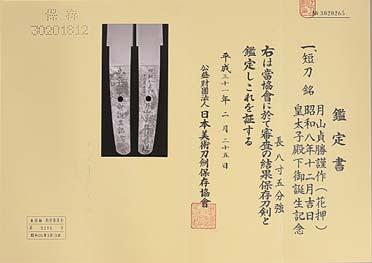 保存
30201812
№ 3020265
鑑定書
一、短刀 銘 月山貞勝謹作(花押)
昭和八年十二月吉日
皇太子殿下御誕生記念
長 八寸五分強
右は當協會に於て審査の結果保存刀剣と
鑑定しこれを証する
平成三十一年 二月二十五日
公益財團法人 日本美術刀劍保存協會